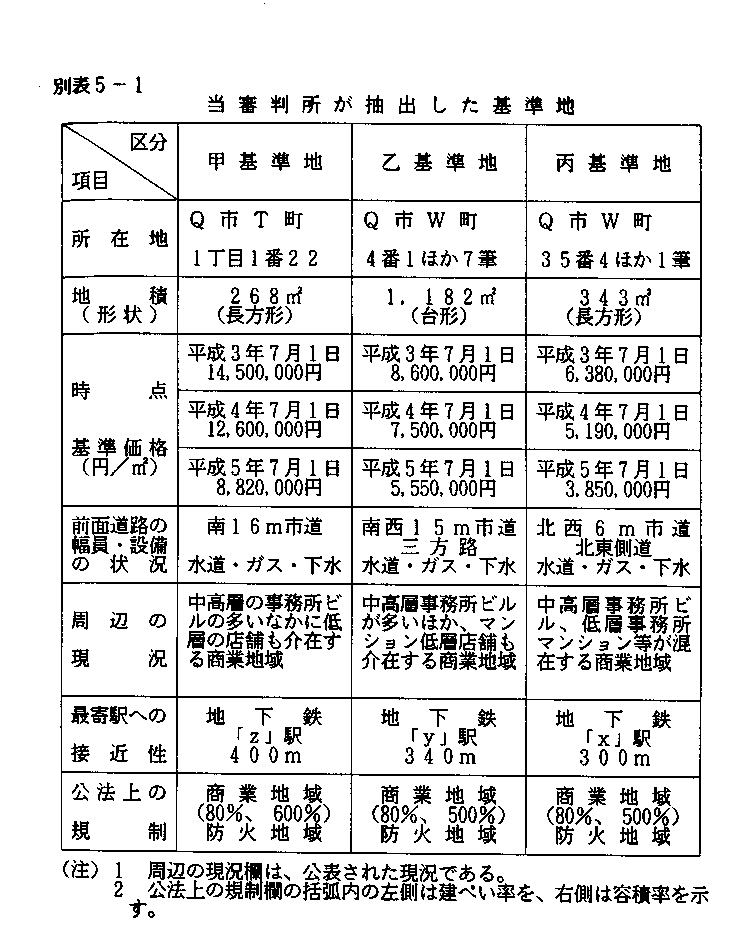 別表5－1
当審判所が抽出した基準地
区分
項目
甲基準地
乙基準地
丙基準地
所在地
Q市T町
1丁目1番22
Q市W町
4番1ほか7筆
Q市W町
35番4ほか1筆
地積
（形状）
268㎡
（長方形）
1，182㎡
（台形）
343㎡
（長方形）
時点
基準価格
（円／㎡）
平成3年7月1日
14,500,000円
平成3年7月1日
8,600,000円
平成3年7月1日
6,380,000円
平成4年7月1日
12,600,000円
平成4年7月1日
7,500,000円
平成4年7月1日
5,190,000円
平成5年7月1日
8,820,000円
平成5年7月1日
5,550,000円
平成5年7月1日
3,850,000円
前面道路の
幅員・設備
の状況
南16m市道
水道・ガス・下水
南西15m市道
三方路
水道・ガス・下水
北西6m市道
北東側道
水道・ガス・下水
周辺の
現況
中高層の事務所ビ
ルの多いなかに低
層の店舗も介在す
る商業地域
中高層事務所ビル
が多いほか、マン
ション低層店舗も
介在する商業地域
中高層事務所ビ
ル、低層事務所
マンション等が混
在する商業地域
最寄駅への
接近性
地下鉄
「z」駅
400m
地下鉄
「y」駅
340m
地下鉄
「x」駅
300m
公法上の
規制
商業地域
(80%、600%)
防火地域
商業地域
(80%、500%)
防火地域
商業地域
(80%、500%)
防火地域
（注）1　周辺の現況欄は、公表された現況である。
2　公法上の規制欄の括弧内の左側は建ぺい率を、右側は容積率を示
す。